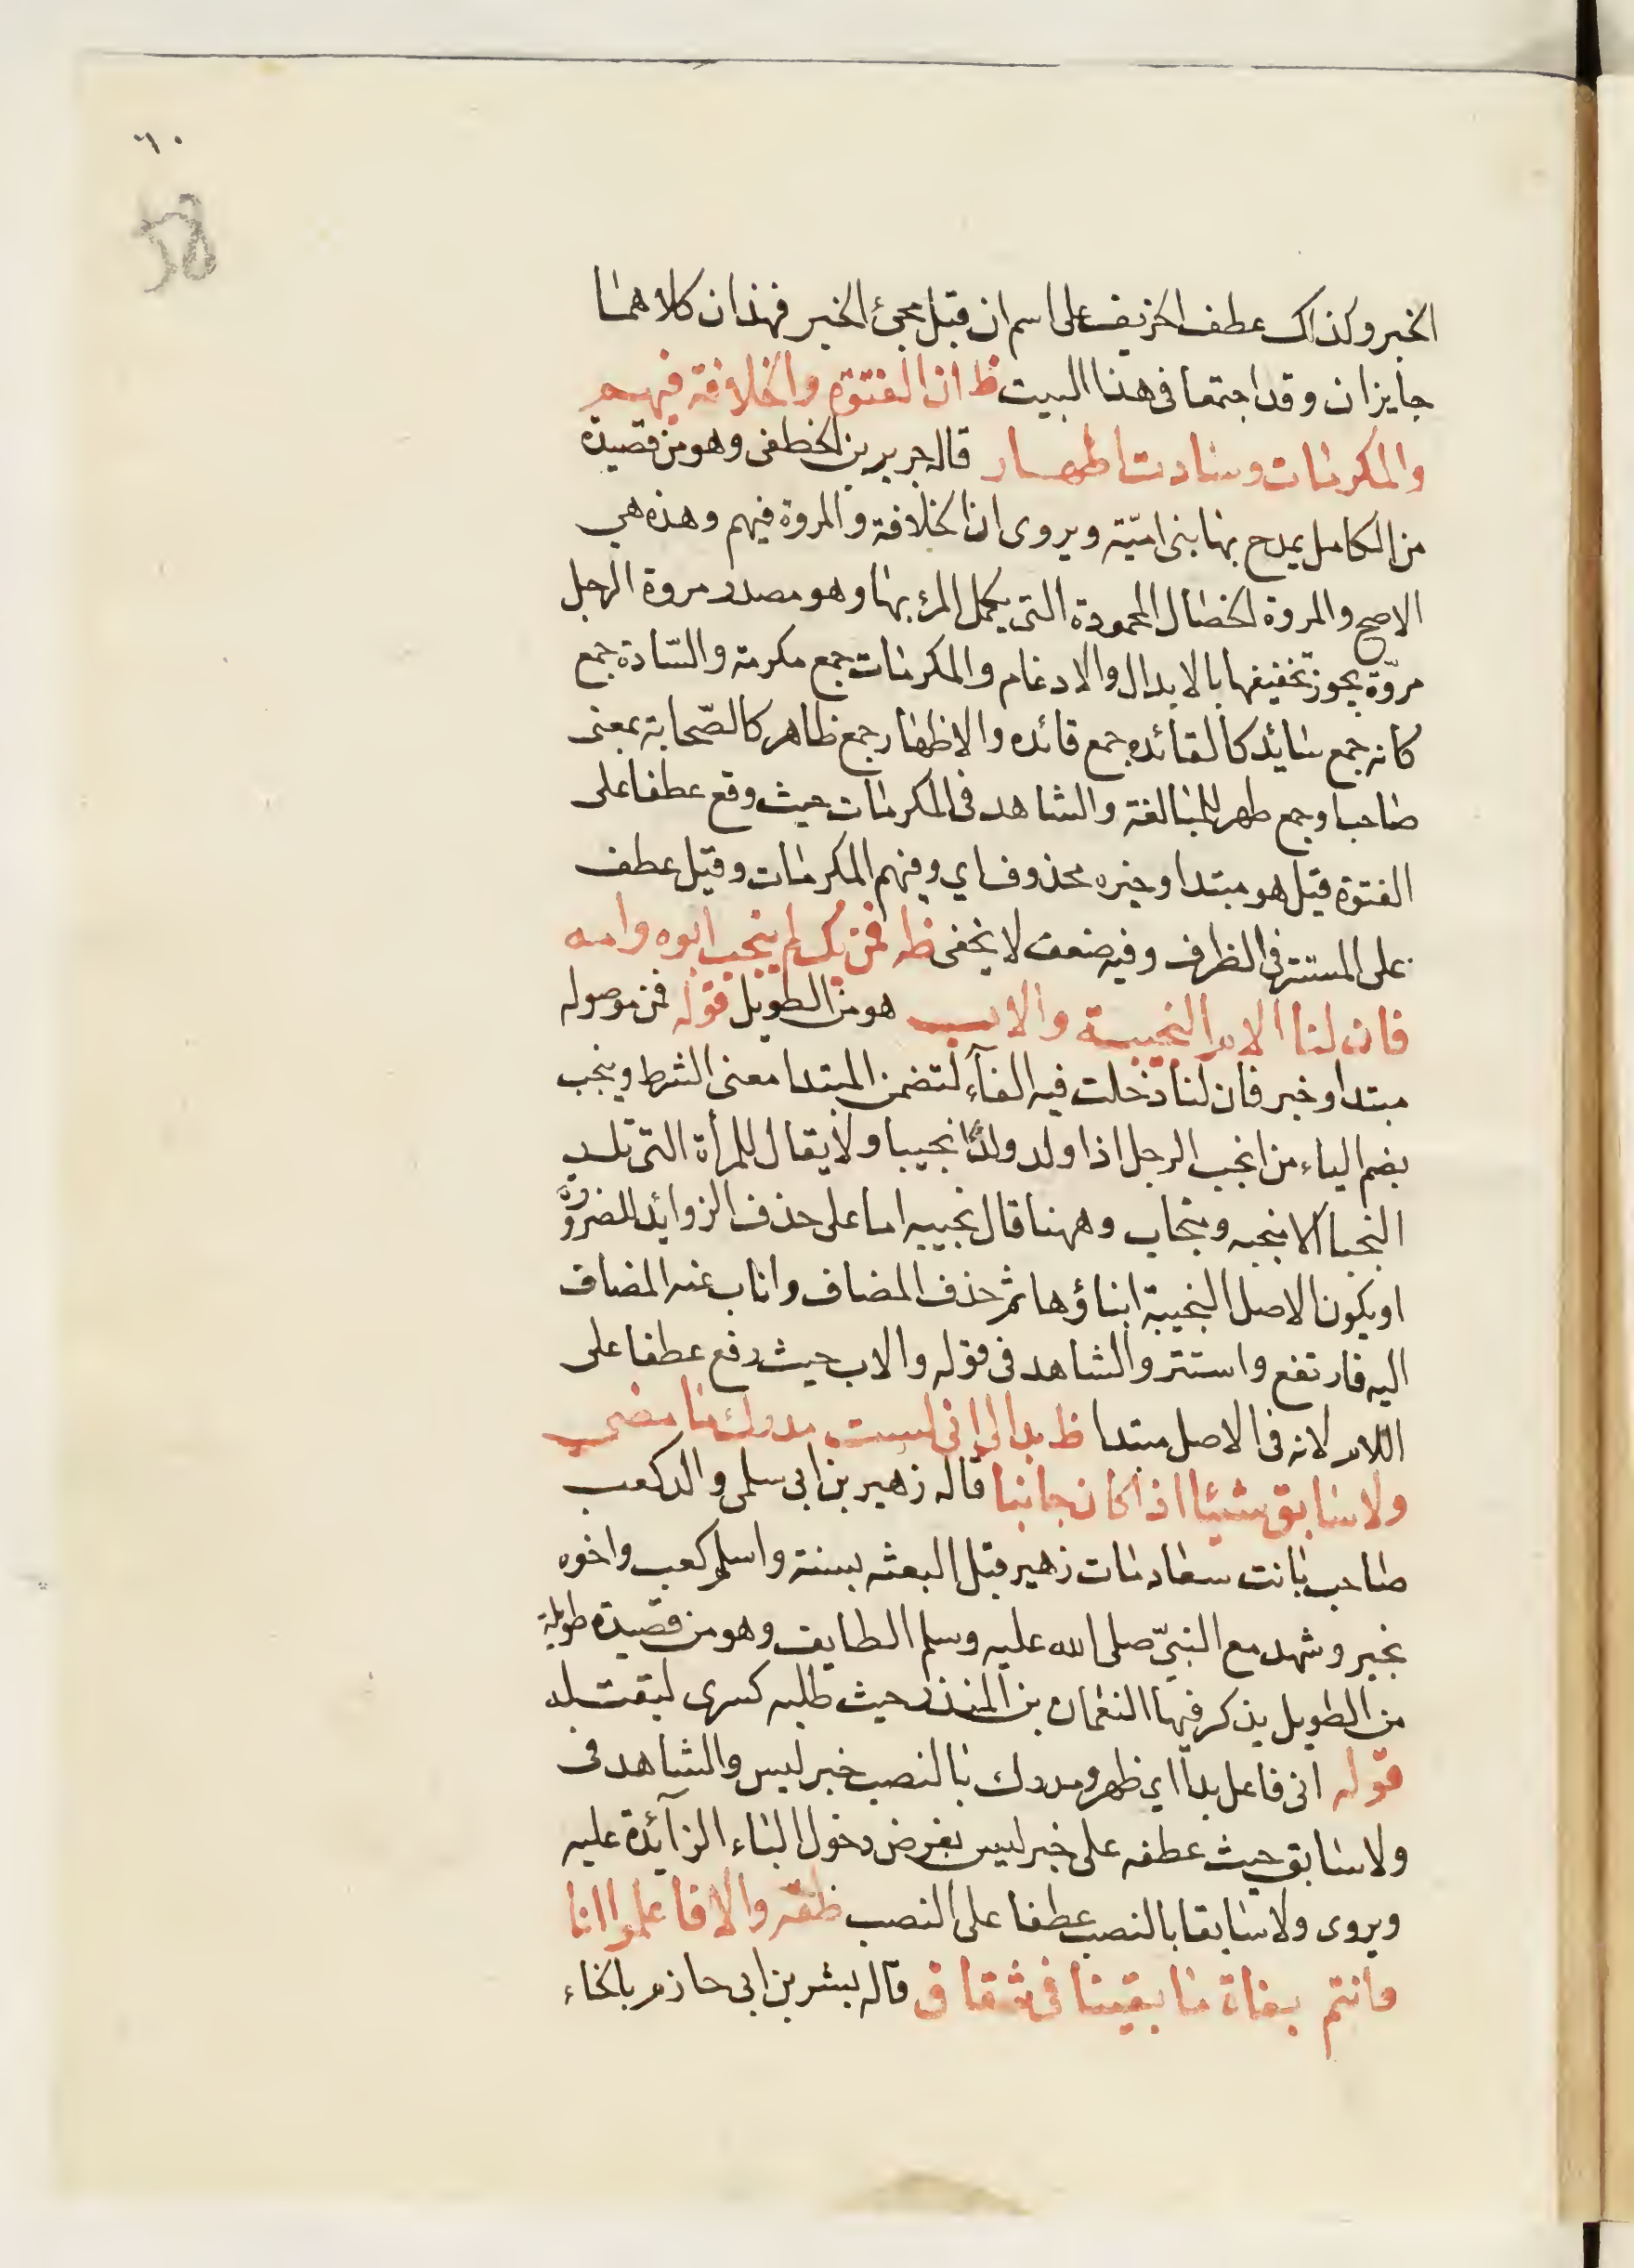 ٦٠
الخبر وكذاك عطف الخريف على اسم ان قبل مجئ الخبر فهذان كلاهما
جايزان وقد اجتمعا فى هذا البيت ظ ان الفتوة والخلافة فيهم
والمكرمات وسادت اطهار قاله جرير بن الخطفى وهو من قصيدة
من الكامل يمدح بها بنى اميّة ويروى ان الخلافة والمروة فيهم وهذه هي
الاصح والمروة الخصال المحمودة التى يكمل المرء بها وهو مصدر مروة الرجل
مروّة يجوز تخفيفها بالابدال والادغام والمكرمات جمع مكرمة والسّادة جمع
كانه جمع سائد كالقائده جمع قائده والاظهار جمع ظاهر كالصّحابة بمعنى
صاحبا وجمع طهر للمبالغة والشاهد فى المكرمات حيث وقع عطفا على
الفتوة قيل هو مبتدا وخبره محذوف اي وفيهم المكرمات وقيل عطف
على المستتر فى الظرف وفيه ضعف لا يخفى ظه فمن يك لم ينجب ابوه وامه
فان لنا الام النجيبة والاب هو من الطويل قوله فمن موصوله
مبتدا وخبر فان لنا دخلت فيه الفآء لتضمن المبتدا معنى الشرط وينجب
بضم الياء من انجب الرجل اذا ولد ولدًا نجيبا ولا يقال للمرأة التى تلد
النجبا الا منجبه ومنجاب وههنا قال نجيبه اما على حذف الزوائد للضرورة
او يكون الاصل النجيبة ابناؤها ثم حذف المضاف واناب عنه المضاف
اليه فارتفع واستتر والشاهد فى قوله والاب حيث رفع عطفا على
اللام لانه فى الاصل مبتدا ظ بدا لى انى لست مدرك ما مضى
ولا سابق شيئا اذا كان جائيا قاله زهير بن ابى سلمى والد كعب
صاحب بانت سعاد مات زهير قبل البعثه بسنة واسلم كعب واخوه
بجير وشهد مع النبيّ صلى الله عليه وسلم الطايف وهو من قصيدة طويلة
من الطويل يذكر فيها النعمان بن المنذر حيث طلبه كسرى ليقتله
قوله انى فاعل بدا اي ظهر ومدرك بالنصب خبر ليس والشاهد فى
ولا سابق حيث عطفه على خبر ليس بفرض دخول الباء الزآئدة عليه
ويروى ولا سابقا بالنصب عطفا على النصب ظقه والا فاعلموا انا
وانتم بغاة ما بقينا فى شقاق قاله بشر بن ابى حازم بالخاء